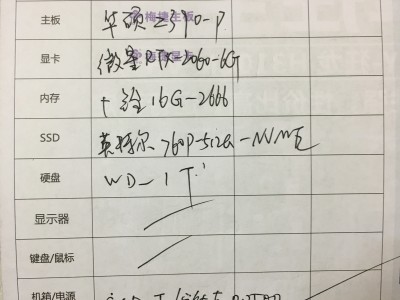 主板 华硕 Z390-P
显卡 微星 RTX-2060-6G
内存 十铨 16G-2666
SSD 英特尔 760P-512G-NVME
硬盘 WD-1T
显示器
键盘/鼠标
机箱/电源